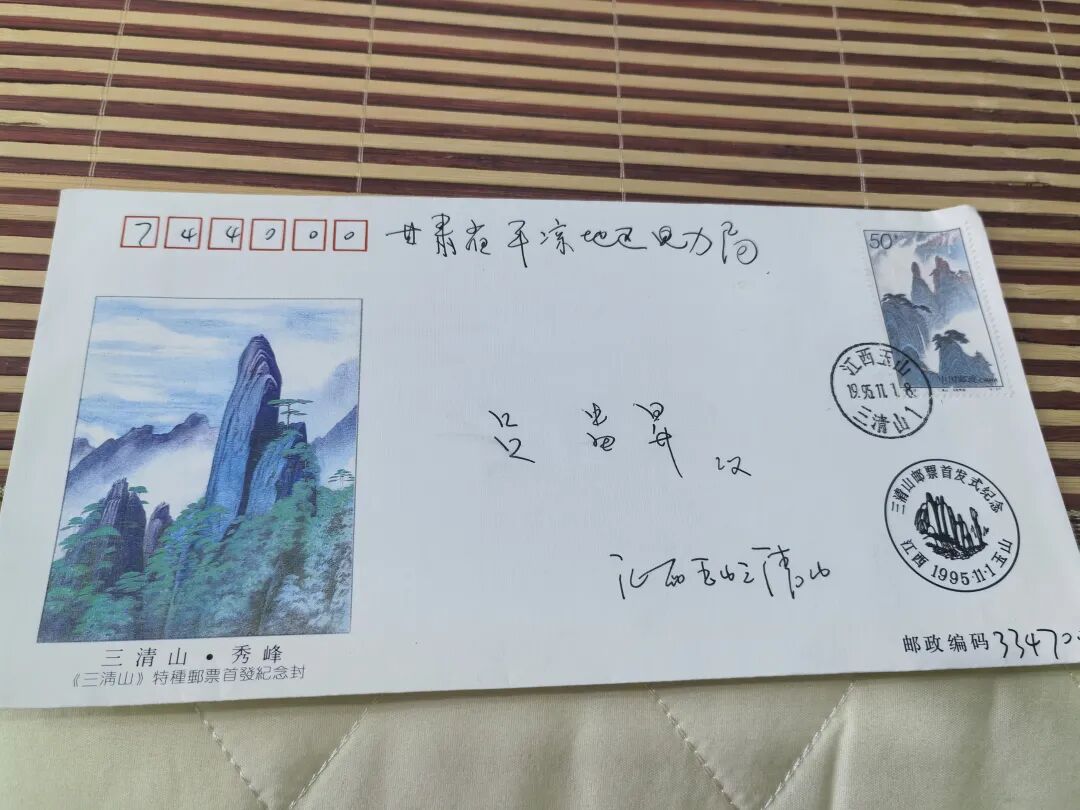 744000
甘肃省平凉地区电力局
50分
江西玉山
19.95.11.1.8
三清山1
吕 昇 收
三清山邮票首发式纪念
江西 1995·11·1 玉山
江西玉山三清山
三清山·秀峰
《三清山》特種郵票首發紀念封
邮政编码 33470